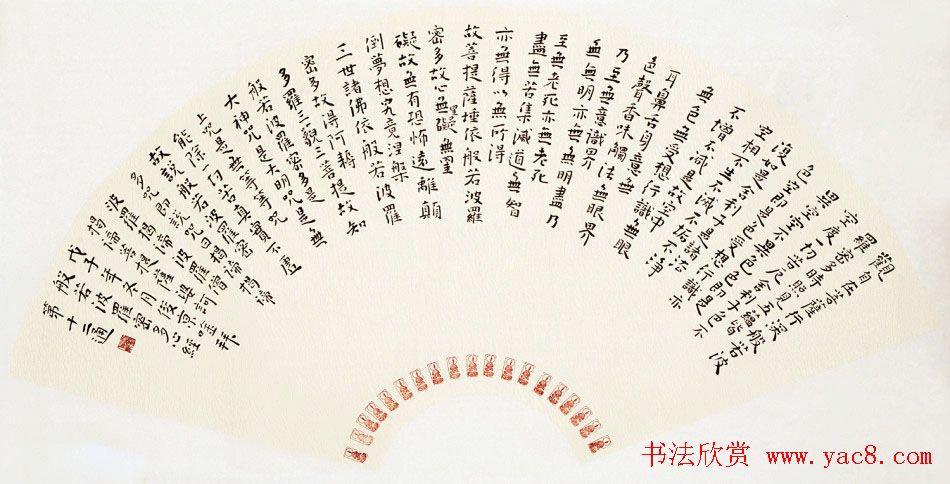 觀自在菩薩行深般若波
羅蜜多時照見五蘊皆
空度一切苦厄舍利子色不
異空空不異色色即是
空空即是色受想行識亦
復如是舍利子是諸法
空相不生不滅不垢不淨
不增不減是故空中
無色無受想行識無眼
耳鼻舌身意無
色聲香味觸法無眼界
乃至無意識界
無無明亦無無明盡乃
至無老死亦無老死
盡無苦集滅道無智
亦無得以無所得
故菩提薩埵依般若波羅
密多故心無罣礙無罣
礙故無有恐怖遠離顛
倒夢想究竟涅槃
三世諸佛依般若波羅
密多故得阿耨
多羅三藐三菩提故知
般若波羅密多是
大神咒是大明咒是無
上咒是無等等咒
能除一切苦真實不虛
故說般若波羅密
多咒即說咒曰揭諦揭諦
波羅揭諦波羅僧
揭諦菩提薩婆訶
戊子年冬月
般若波羅密多心經
第十三通
书法欣赏 www.yac8.com